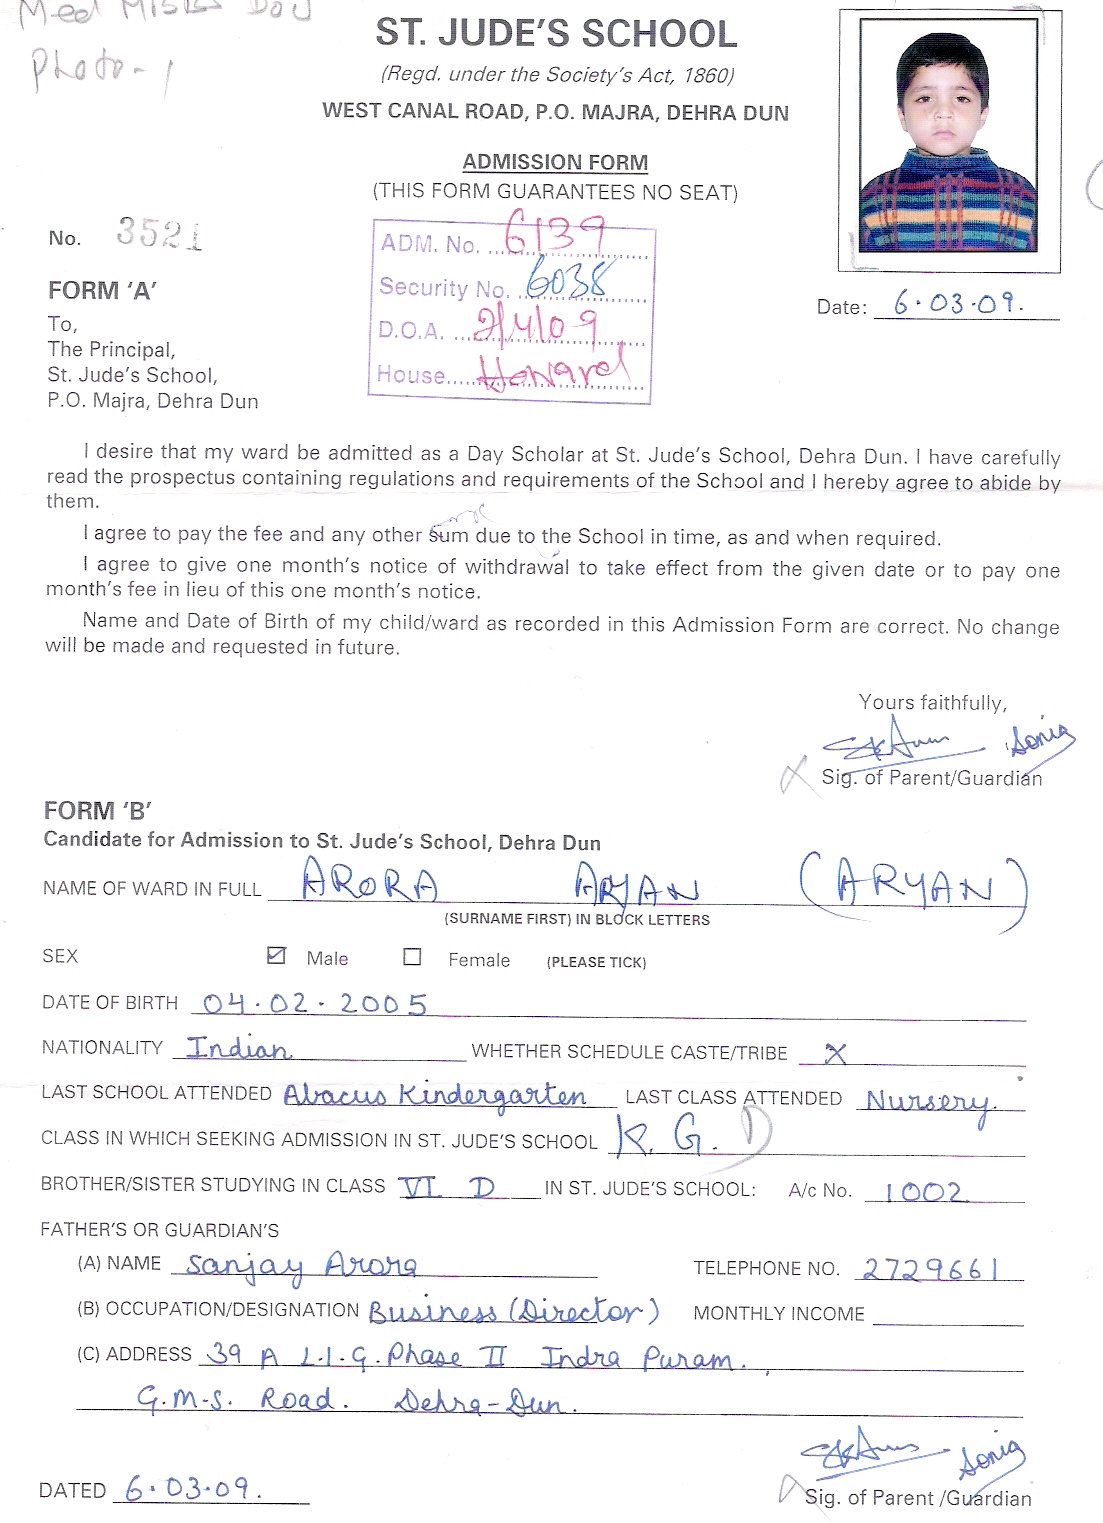 Med Misses
Photo - 1
ST. JUDE'S SCHOOL
(Regd. under the Society's Act, 1860)
WEST CANAL ROAD, P.O. MAJRA, DEHRA DUN
ADMISSION FORM
(THIS FORM GUARANTEES NO SEAT)
No. 3521
ADM. No. 6139
Security No. 6038
D.O.A. 2/4/09
House Howard
Date: 6.03.09.
FORM 'A'
To,
The Principal,
St. Jude's School,
P.O. Majra, Dehra Dun
I desire that my ward be admitted as a Day Scholar at St. Jude's School, Dehra Dun. I have carefully
read the prospectus containing regulations and requirements of the School and I hereby agree to abide by
them.
I agree to pay the fee and any other sum due to the School in time, as and when required.
I agree to give one month's notice of withdrawal to take effect from the given date or to pay one
month's fee in lieu of this one month's notice.
Name and Date of Birth of my child/ward as recorded in this Admission Form are correct. No change
will be made and requested in future.
Yours faithfully,
Sonia
Sig. of Parent/Guardian
FORM 'B'
Candidate for Admission to St. Jude's School, Dehra Dun
NAME OF WARD IN FULL ARORA ARYAN (ARYAN)
(SURNAME FIRST) IN BLOCK LETTERS
SEX Male Female (PLEASE TICK)
DATE OF BIRTH 04.02.2005
NATIONALITY Indian WHETHER SCHEDULE CASTE/TRIBE X
LAST SCHOOL ATTENDED Abacus Kindergarten LAST CLASS ATTENDED Nursery.
CLASS IN WHICH SEEKING ADMISSION IN ST. JUDE'S SCHOOL K.G. D
BROTHER/SISTER STUDYING IN CLASS VI D IN ST. JUDE'S SCHOOL: A/c No. 1002
FATHER'S OR GUARDIAN'S
(A) NAME Sanjay Arora TELEPHONE NO. 2729661
(B) OCCUPATION/DESIGNATION Business (Director) MONTHLY INCOME
(C) ADDRESS 39 A L.I.G. Phase II Indra Puram.
G.M.S. Road. Dehra-Dun.
Sonia
DATED 6.03.09.
Sig. of Parent /Guardian